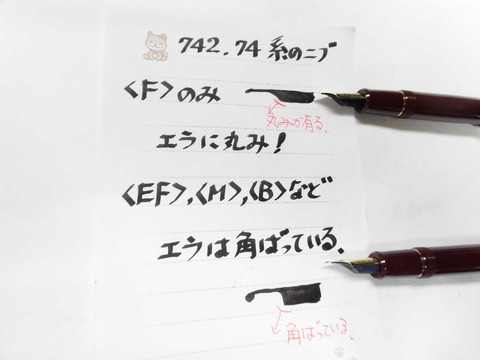 742.74系のニブ
<F>のみ
丸みが有る。
エラに丸み!
<EF>,<M>,<B>など
エラは角ばっている.
角ばっている。